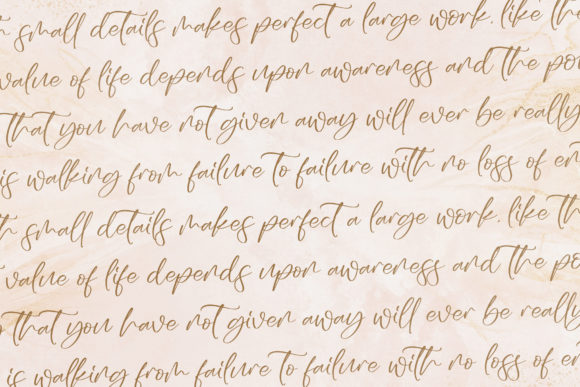 small details makes perfect a large work. like th
value of life depends upon awareness and the po
that you have not given away will ever be really
is walking from failure to failure with no loss of e
small details makes perfect a large work. like th
value of life depends upon awareness and the po
that you have not given away will ever be really
is walking from failure to failure with no loss of e